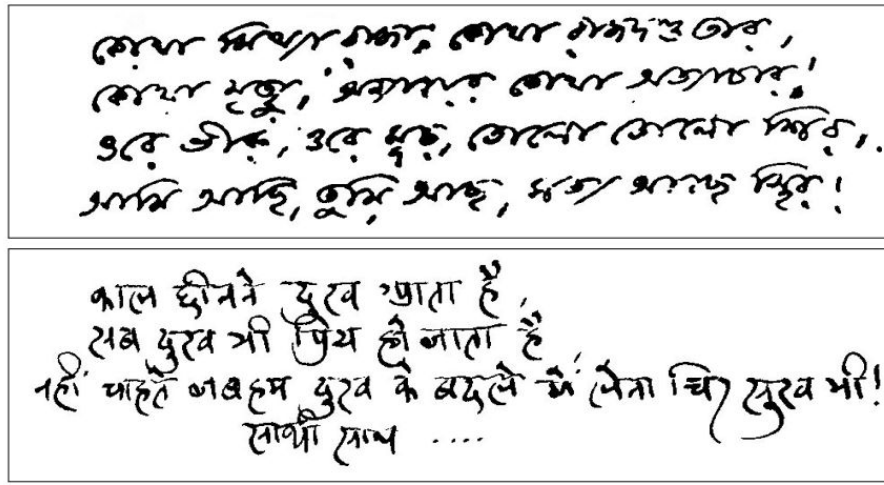 কোথা মিথ্যা রাজা, কোথা রাজদণ্ড তার,
কোথা মৃত্যু, কোথা অত্যাচার!
ওরে ভীরু, ওরে মূঢ়, তোলো তোলো শির,
আমি আছি, তুমি আছ, সত্য আছে স্থির!
काल छीनने दुख आता है,
जब दुख भी प्रिय हो जाता है,
नहीं चाहते जब हम दुख के बदले में लेना चिर सुख भी!
साथी साथ ....